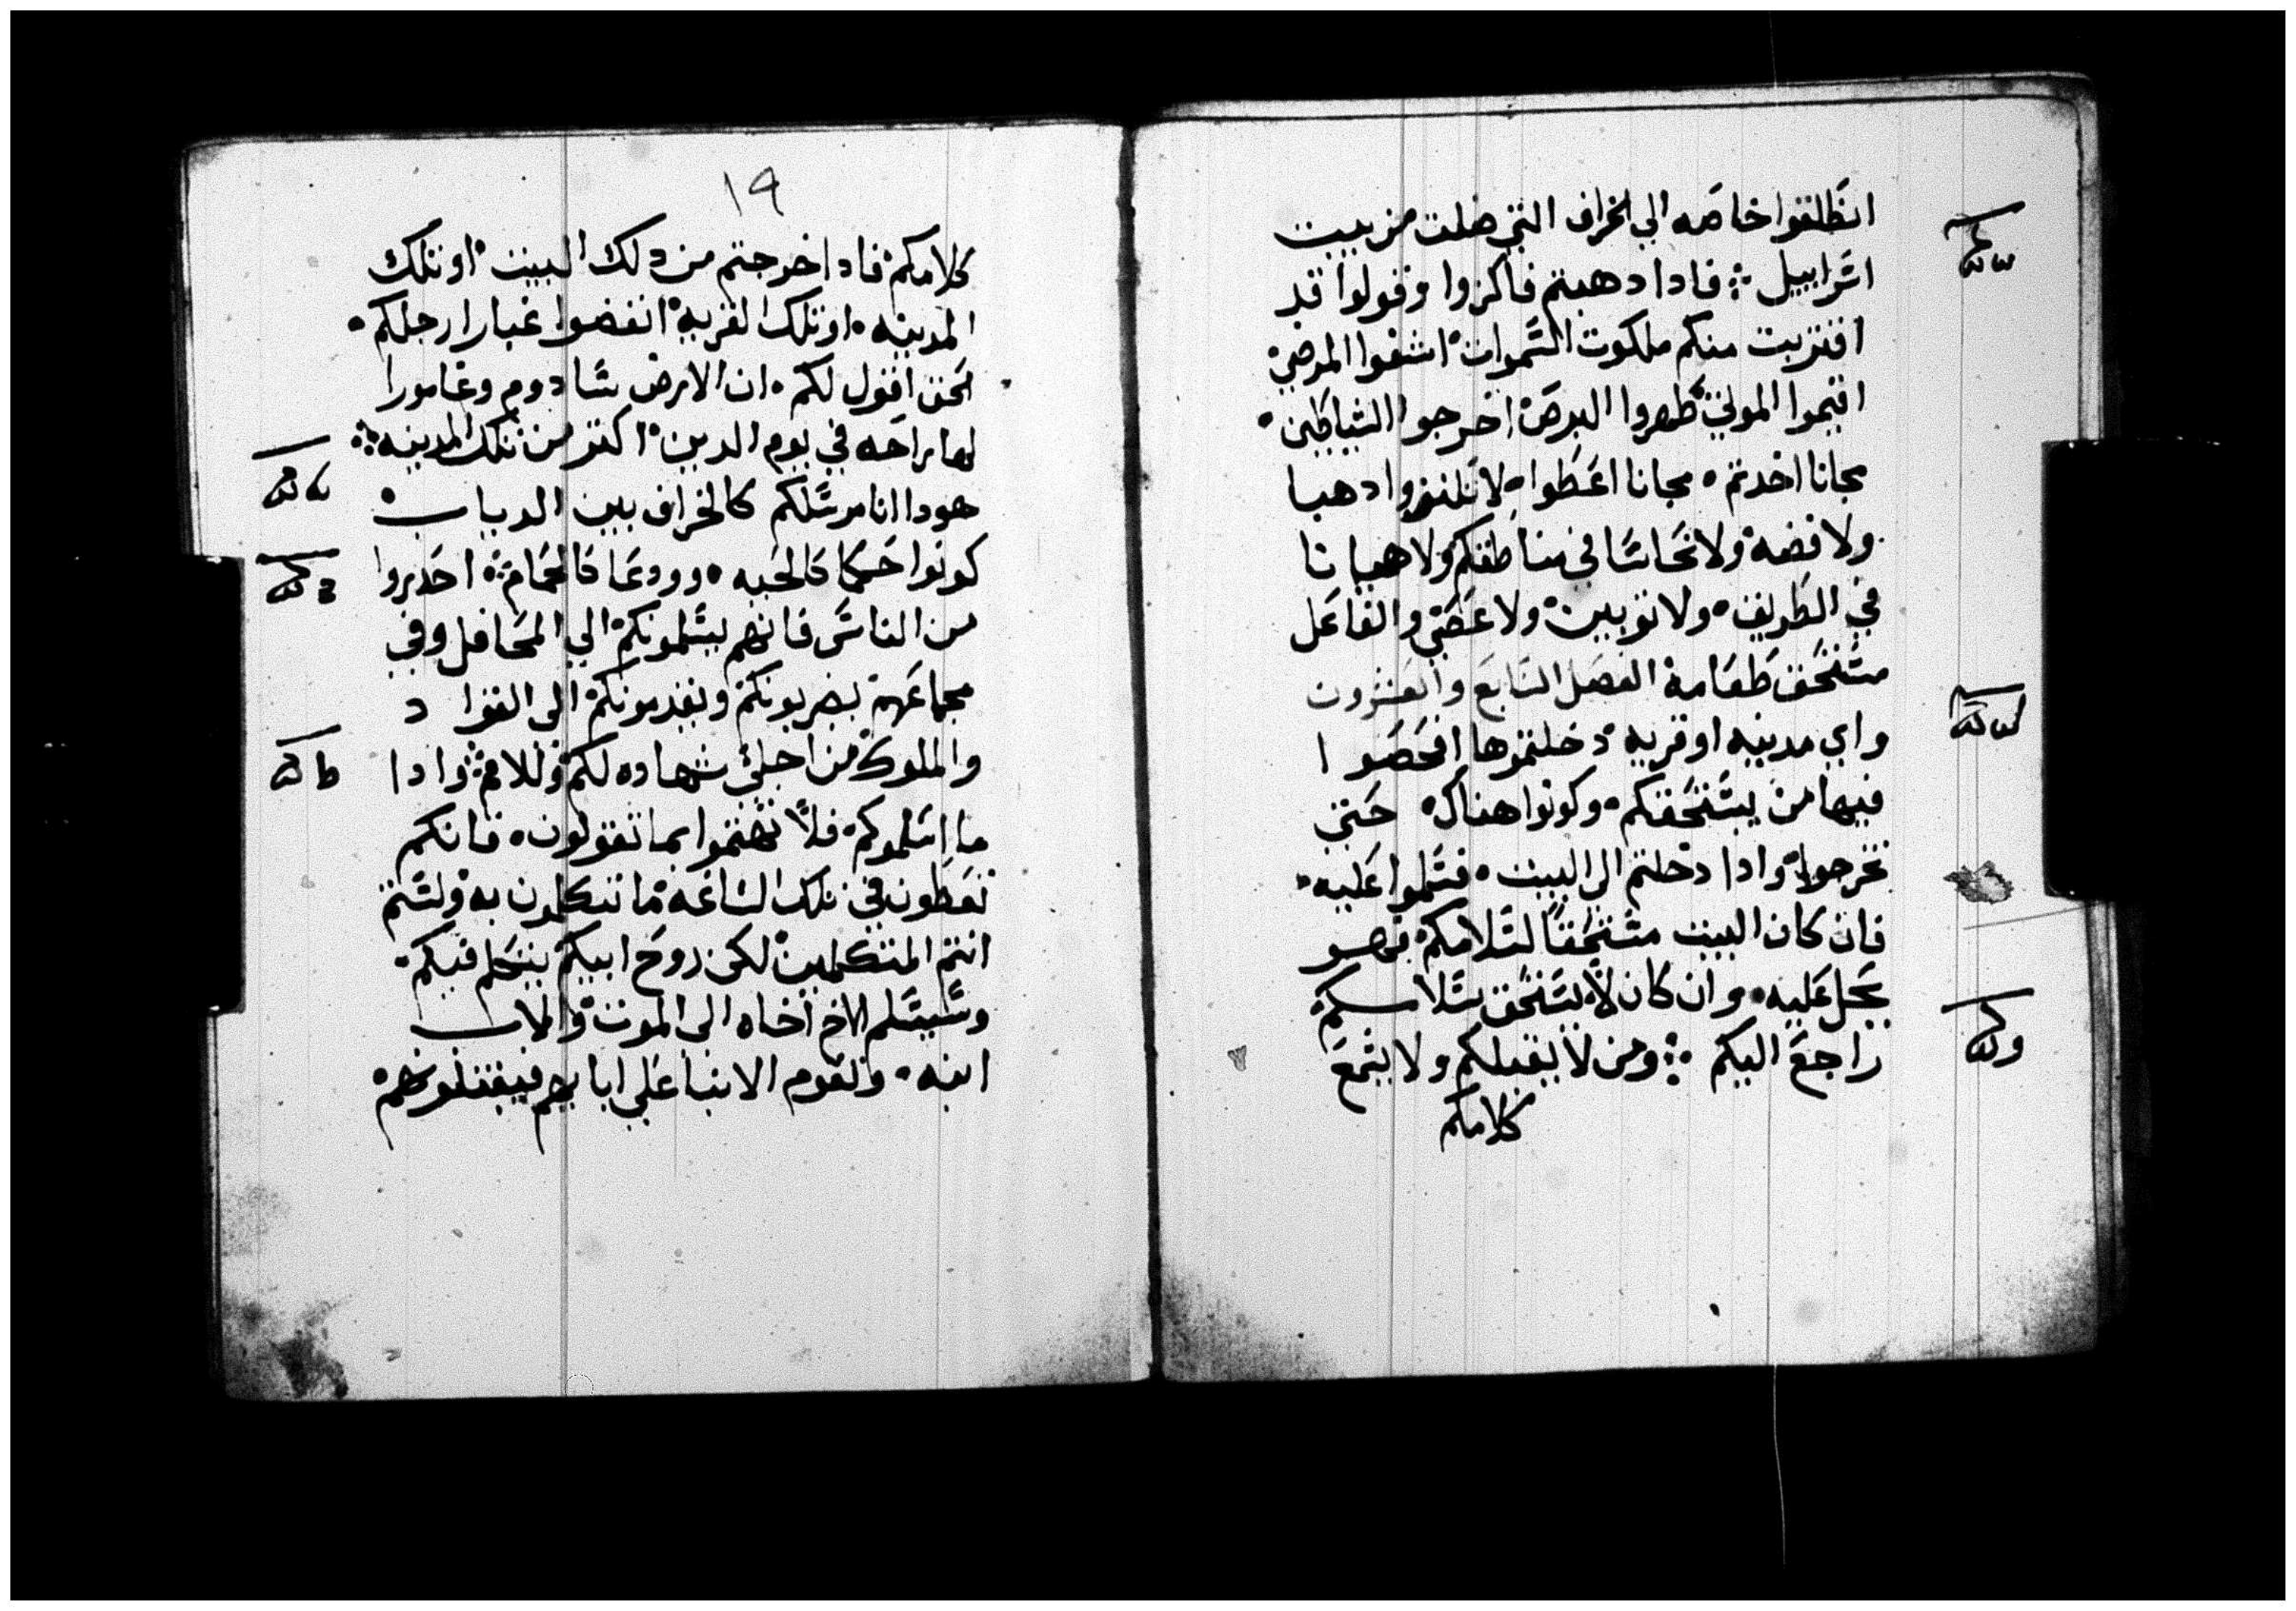 انطلقوا خاصه الي الخراف التي ضلت من بيت
اسراييل ܀ فادا دهبتم فاكرزوا وقولوا قد
اقتربت منكم ملكوت السموات اشفوا المرضي
اقيموا الموتي طهروا البرص اخرجوا الشياطين
مجانا اخدتم مجانا اعطوا لا تقتنوا دهبا
ولا فضه ولا نحاسا في مناطقكم ولا هميانا
في الطريق ولا توبين ولا عصي والفاعل
مستحق طعامه الفصل السابع والعشرون
واي مدينه او قريه دخلتموها افحصوا
فيها من يستحقكم وكونوا هناك حتي
تخرجوا وادا دخلتم الي البيت فسلموا عليه
فان كان البيت مستحقا لسلامكم فهو
يحل عليه وان كان لا يستحق سلامكم
راجع اليكم ܀ ومن لا يقبلكم ولا يسمع
كلامكم
١٩
كلامكم فادا خرجتم من دلك البيت او تلك
المدينه او تلك القريه انفضوا غبار ارجلكم
الحق اقول لكم ان الارض سادوم وغامورا
لها راحه في يوم الدين اكتر من تلك المدينه ܀
هودا انا مرسلكم كالخراف بين الدياب
كونوا حكما كالحيه وودعا كالحمام احدروا
من الناس فانهم يسلمونكم الي المحافل وفي
مجامعهم يضربونكم ويقدمونكم الي القواد
والملوك من اجلي شهاده لكم وللامم وادا
ما اسلموكم فلا تهتموا بما تقولون فانكم
تعطون في تلك الساعه ما تتكلمون به ولستم
انتم المتكلمين لكن روح ابيكم يتكلم فيكم
وسيسلم الاخ اخاه الي الموت والاب
ابنه وتقوم الابنا علي ابايهم فيقتلونهم